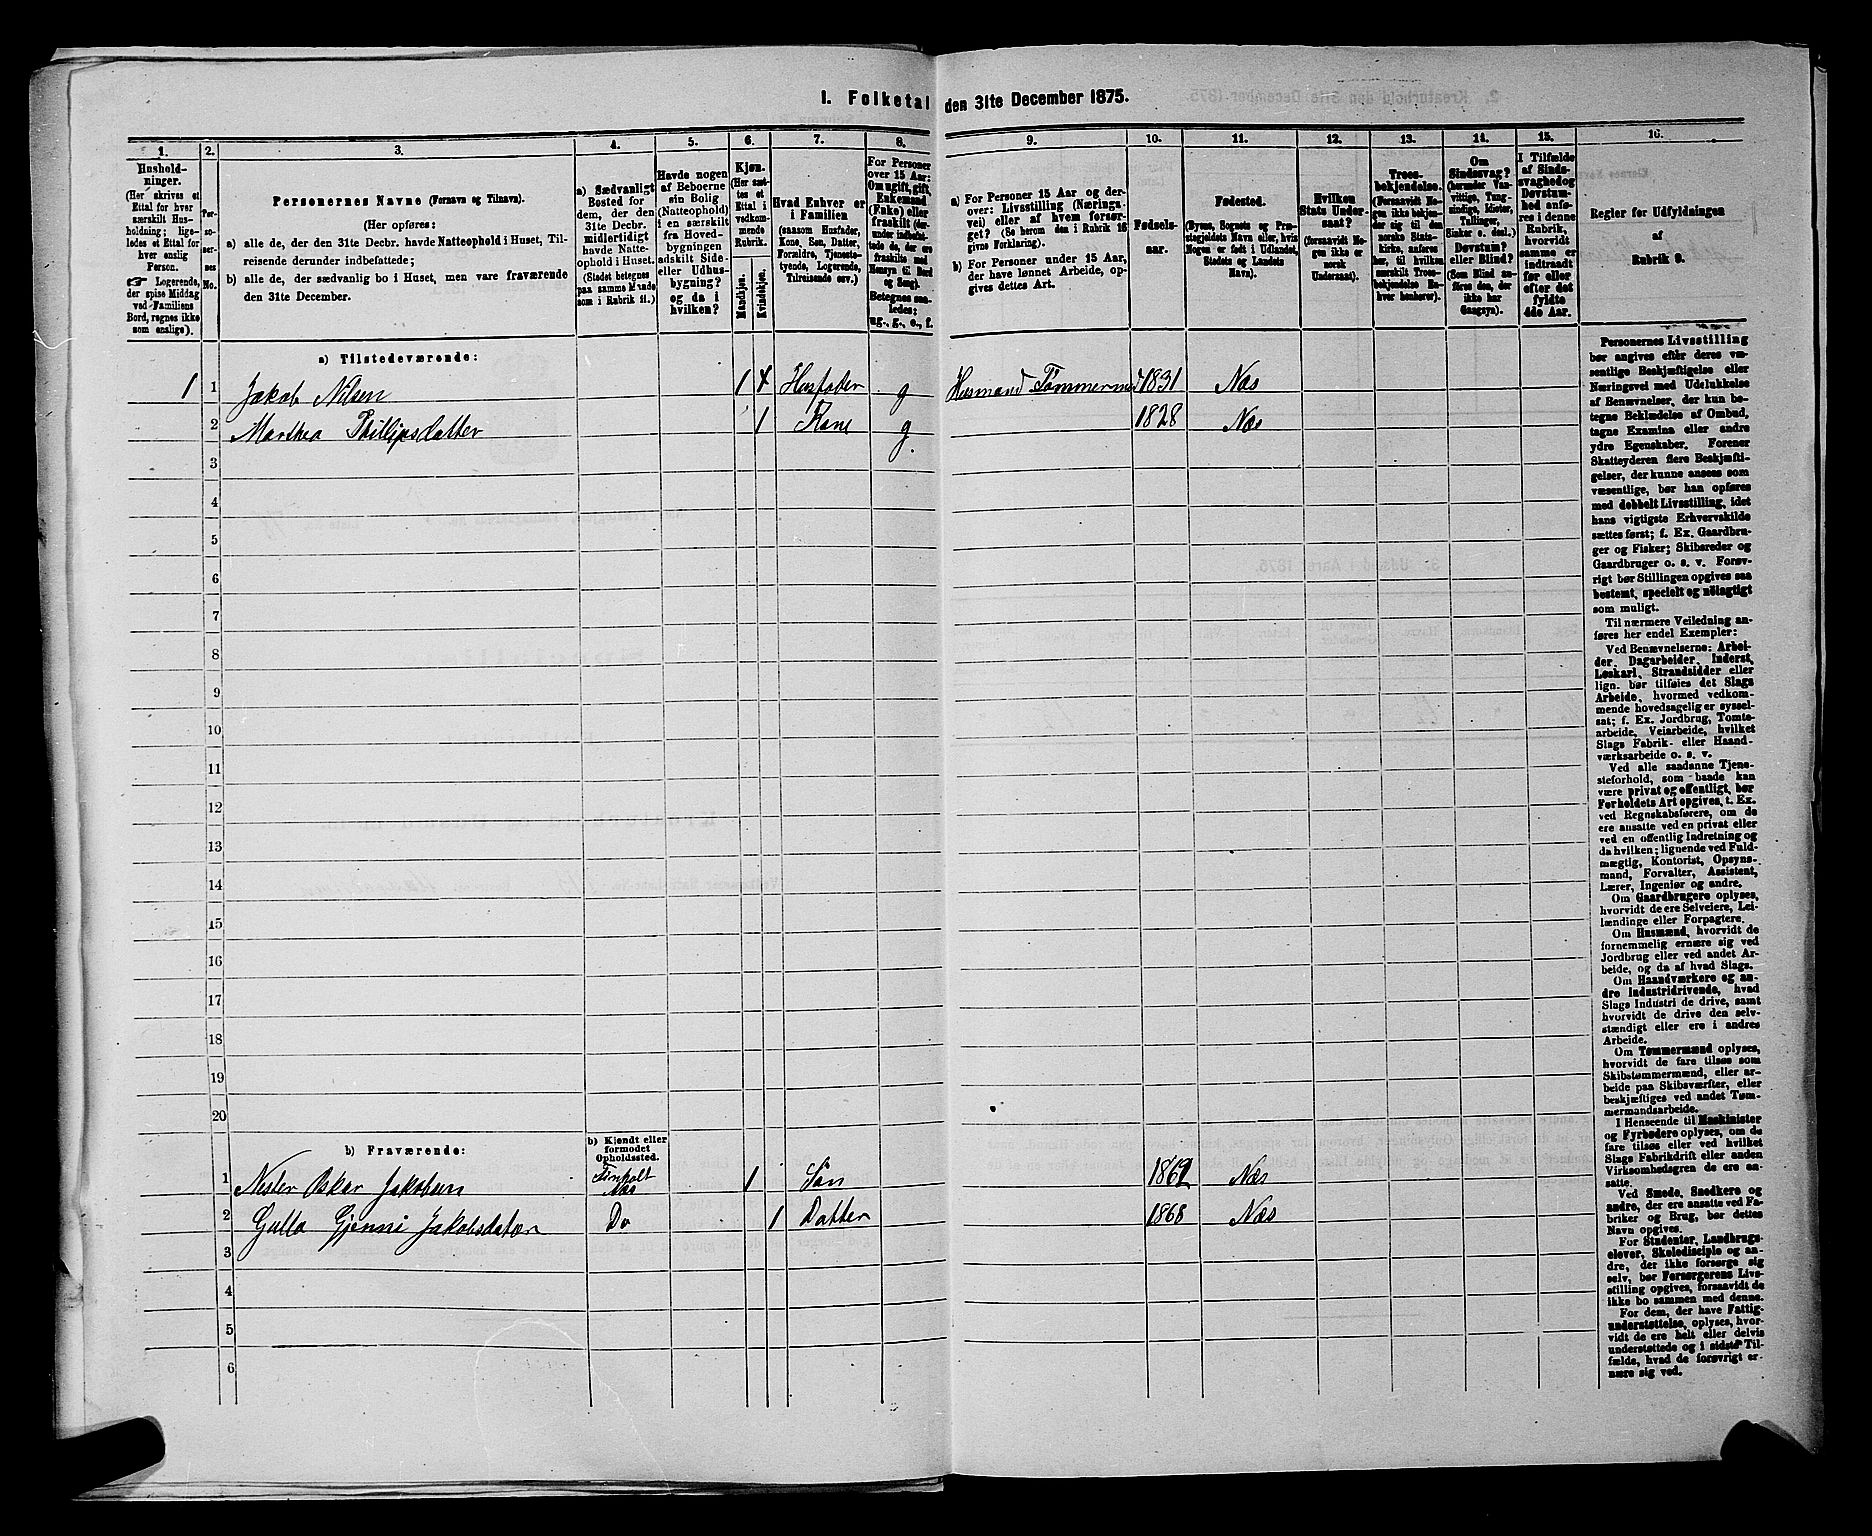 1. Folketal den 31te December 1875.
1.
Husholdninger.
(Her skrives et
Ettal for hver
særskilt Husholdning; ligeledes et Ettal for
hver enslig
Person.
☞ Logerende,
der spise Middag
ved Familiens
Bord, regnes ikke
som enslige).
2.
Personernes
No.
3.
Personernes Navne (Fornavn og Tilnavn).
(Her opføres:
a) alle de, der den 31te Decbr. havde Natteophold i Huset, Tilreisende derunder indbefattede;
b) alle de, der sædvanlig bo i Huset, men vare fraværende
den 31te December.
4.
a) Sædvanligt
Bosted for
dem, der den
31te Decbr.
midlertidigt
havde Natteophold i Huset.
(Stedet betegnes
paa samme Maade
som i Rubrik 11.)
5.
Havde nogen
af Beboerne
sin Bolig
(Natteophold)
i en særskilt
fra Hovedbygningen
adskilt Side-
eller Udhusbygning?
og da i
hvilken?
6.
Kjøn.
(Her sættes et
Ettal i
vedkommende
Rubrik.
Mandkjøn.
Kvindekjøn.
7.
Hvad Enhver er
i Familien
(saasom Husfader,
Kone, Søn, Datter,
Forældre, Tjenestetyende, Logerende,
Tilreisende osv.)
8.
For Personer
over 15 Aar:
Om ugift, gift,
Enkemand
(Enke) eller
fraskilt (derunder indbefattede de, der ere
fraskilte med
Hensyn til Bord
og Seng).
Betegnes saaledes:
ug., g., e., f.
9.
a) For Personer 15 Aar og derover: Livsstilling (Næringsvei) eller af hvem forsørget? (Se herom den i Rubrik 16
givne Forklaring).
b) For Personer under 15 Aar,
der have lønnet Arbeide, opgives dettes Art.
10.
Fødselsaar.
11.
Fødested.
(Byens, Sognets og Præstegjeldets Navn eller, hvis
Nogen er født i Udlandet,
Stedets og Landets
Navn).
12.
Hvilken
Stats Undersaat?
(forsaavidt Nogen ikke er
norsk
Undersaat).
13.
Troesbekjendelse.
(Forsaavidt Nogen ikke bekjender sig til den
norske Statskirke, anføres
her, til hvilken
særskilt Troesbekjendelse Enhver henhører).
14.
Om
Sindssvag?
(herunder Vanvittige, Tungsindige, Idioter,
Tullinger,
Sinker o. desl.)
Døvstum?
eller Blind?
(Som Blind anføres den, der
ikke har
Gangsyn).
15.
I Tilfælde
af Sindssvaghed og
Døvstumhed anføres i denne
Rubrik,
hvorvidt
samme er
indtraadt
før eller
efter det
fyldte
4de Aar.
16.
Regler for Udfyldningen
af
Rubrik 9.
a) Tilstedeværende:
1 1 Jakob Nilsen 1 Husfader g Husmand Tømmermd 1831 Næs
2 Marthea Phillipsdatter 1 Kone g. 1828 Næs
3
4
5
6
7
8
9
10
11
12
13
14
15
16
17
18
19
20
b) Fraværende:
b) Kjendt eller
formodet
Opholdssted.
1 Nester Oskar Jakobsen Finholt Næs 1 Søn 1862 Næs
2 Gulla Gjenni Jakobsdatter Do 1 Datter 1868 Næs
3
4
5
6
Personernes Livsstilling
bør angives efter deres væsentlige Beskjæftigelse eller
Næringsvei med Udelukkelse
af Benævnelser, der kun betegne Beklædelse af Ombud,
tagne Examina eller andre
ydre Egenskaber. Forener
Skatteyderen flere Beskjæftigelser, der kunne ansees som
væsentlige, bør han opføres
med dobbelt Livsstilling, idet
hans vigtigste Erhvervskilde
sættes først; f. Ex. Gaardbruger og Fisker; Skibsreder og
Gaardbruger o. s. v. Forøvrigt bør Stillingen opgives saa
bestemt, specielt og nøiagtigt
som muligt.
Til nærmere Veiledning anføres her endel Exempler:
Ved Benævnelserne: Arbeider, Dagarbeider, Inderst,
Løskarl, Strandsidder eller
lign. bør tilføies det Slags
Arbeide, hvormed vedkommende hovedsagelig er sysselsat; f. Ex. Jordbrug, Tomtearbeide, Veiarbeide, hvilket
Slags Fabrik- eller Haandværksarbeide o. s. v.
Ved alle saadanne Tjenesteforhold, som baade kan
være privat og offentligt, bør
Forholdets Art opgives, t. Ex.
ved Regnskabsførere, om de
ere ansatte ved en privat eller
ved en offentlig Indretning og
da hvilken; lignende ved Fuldmægtig, Kontorist, Opsynsmand, Forvalter, Assistent,
Lærer, Ingeniør og andre.
Om Gaardbrugere oplyses,
hvorvidt de ere Selveiere, Leilændinge eller Forpagtere.
Om Husmænd, hvorvidt de
fornemmelig ernære sig ved
Jordbrug eller ved andet Arbeide, og da af hvad Slags.
Om Haandværkere og andre Industridrivende, hvad
Slags Industri de drive, samt
hvorvidt de drive den selvstændigt eller ere i andres
Arbeide.
Om Tømmermænd oplyses,
hvorvidt de fare tilsøs som
Skibstømmermænd, eller arbeide paa Skibsværfter, eller
beskjæftiges ved andet Tømmermandsarbeide.
I Henseende til Maskinister
og Fyrbødere oplyses, om de
fare tilsøs eller ved hvilket
Slags Fabrikdrift eller anden
Virksomhedsgren de ere ansatte.
Ved Smede, Snedkere og
andre, der ere ansatte ved Fabriker og Brug, bør dettes
Navn opgives.
For Studenter, Landbrugselever, Skoledisciple og andre, der ikke forsørge sig
selv, bør Forsørgerens Livsstilling opgives, forsaavidt de
ikke bo sammen med denne.
For dem, der have Fattigunderstøttelse, oplyses, hvorvidt de ere helt eller delvis
understøttede og i sidste Tilfælde, hvad de forøvrigt ernære sig ved.